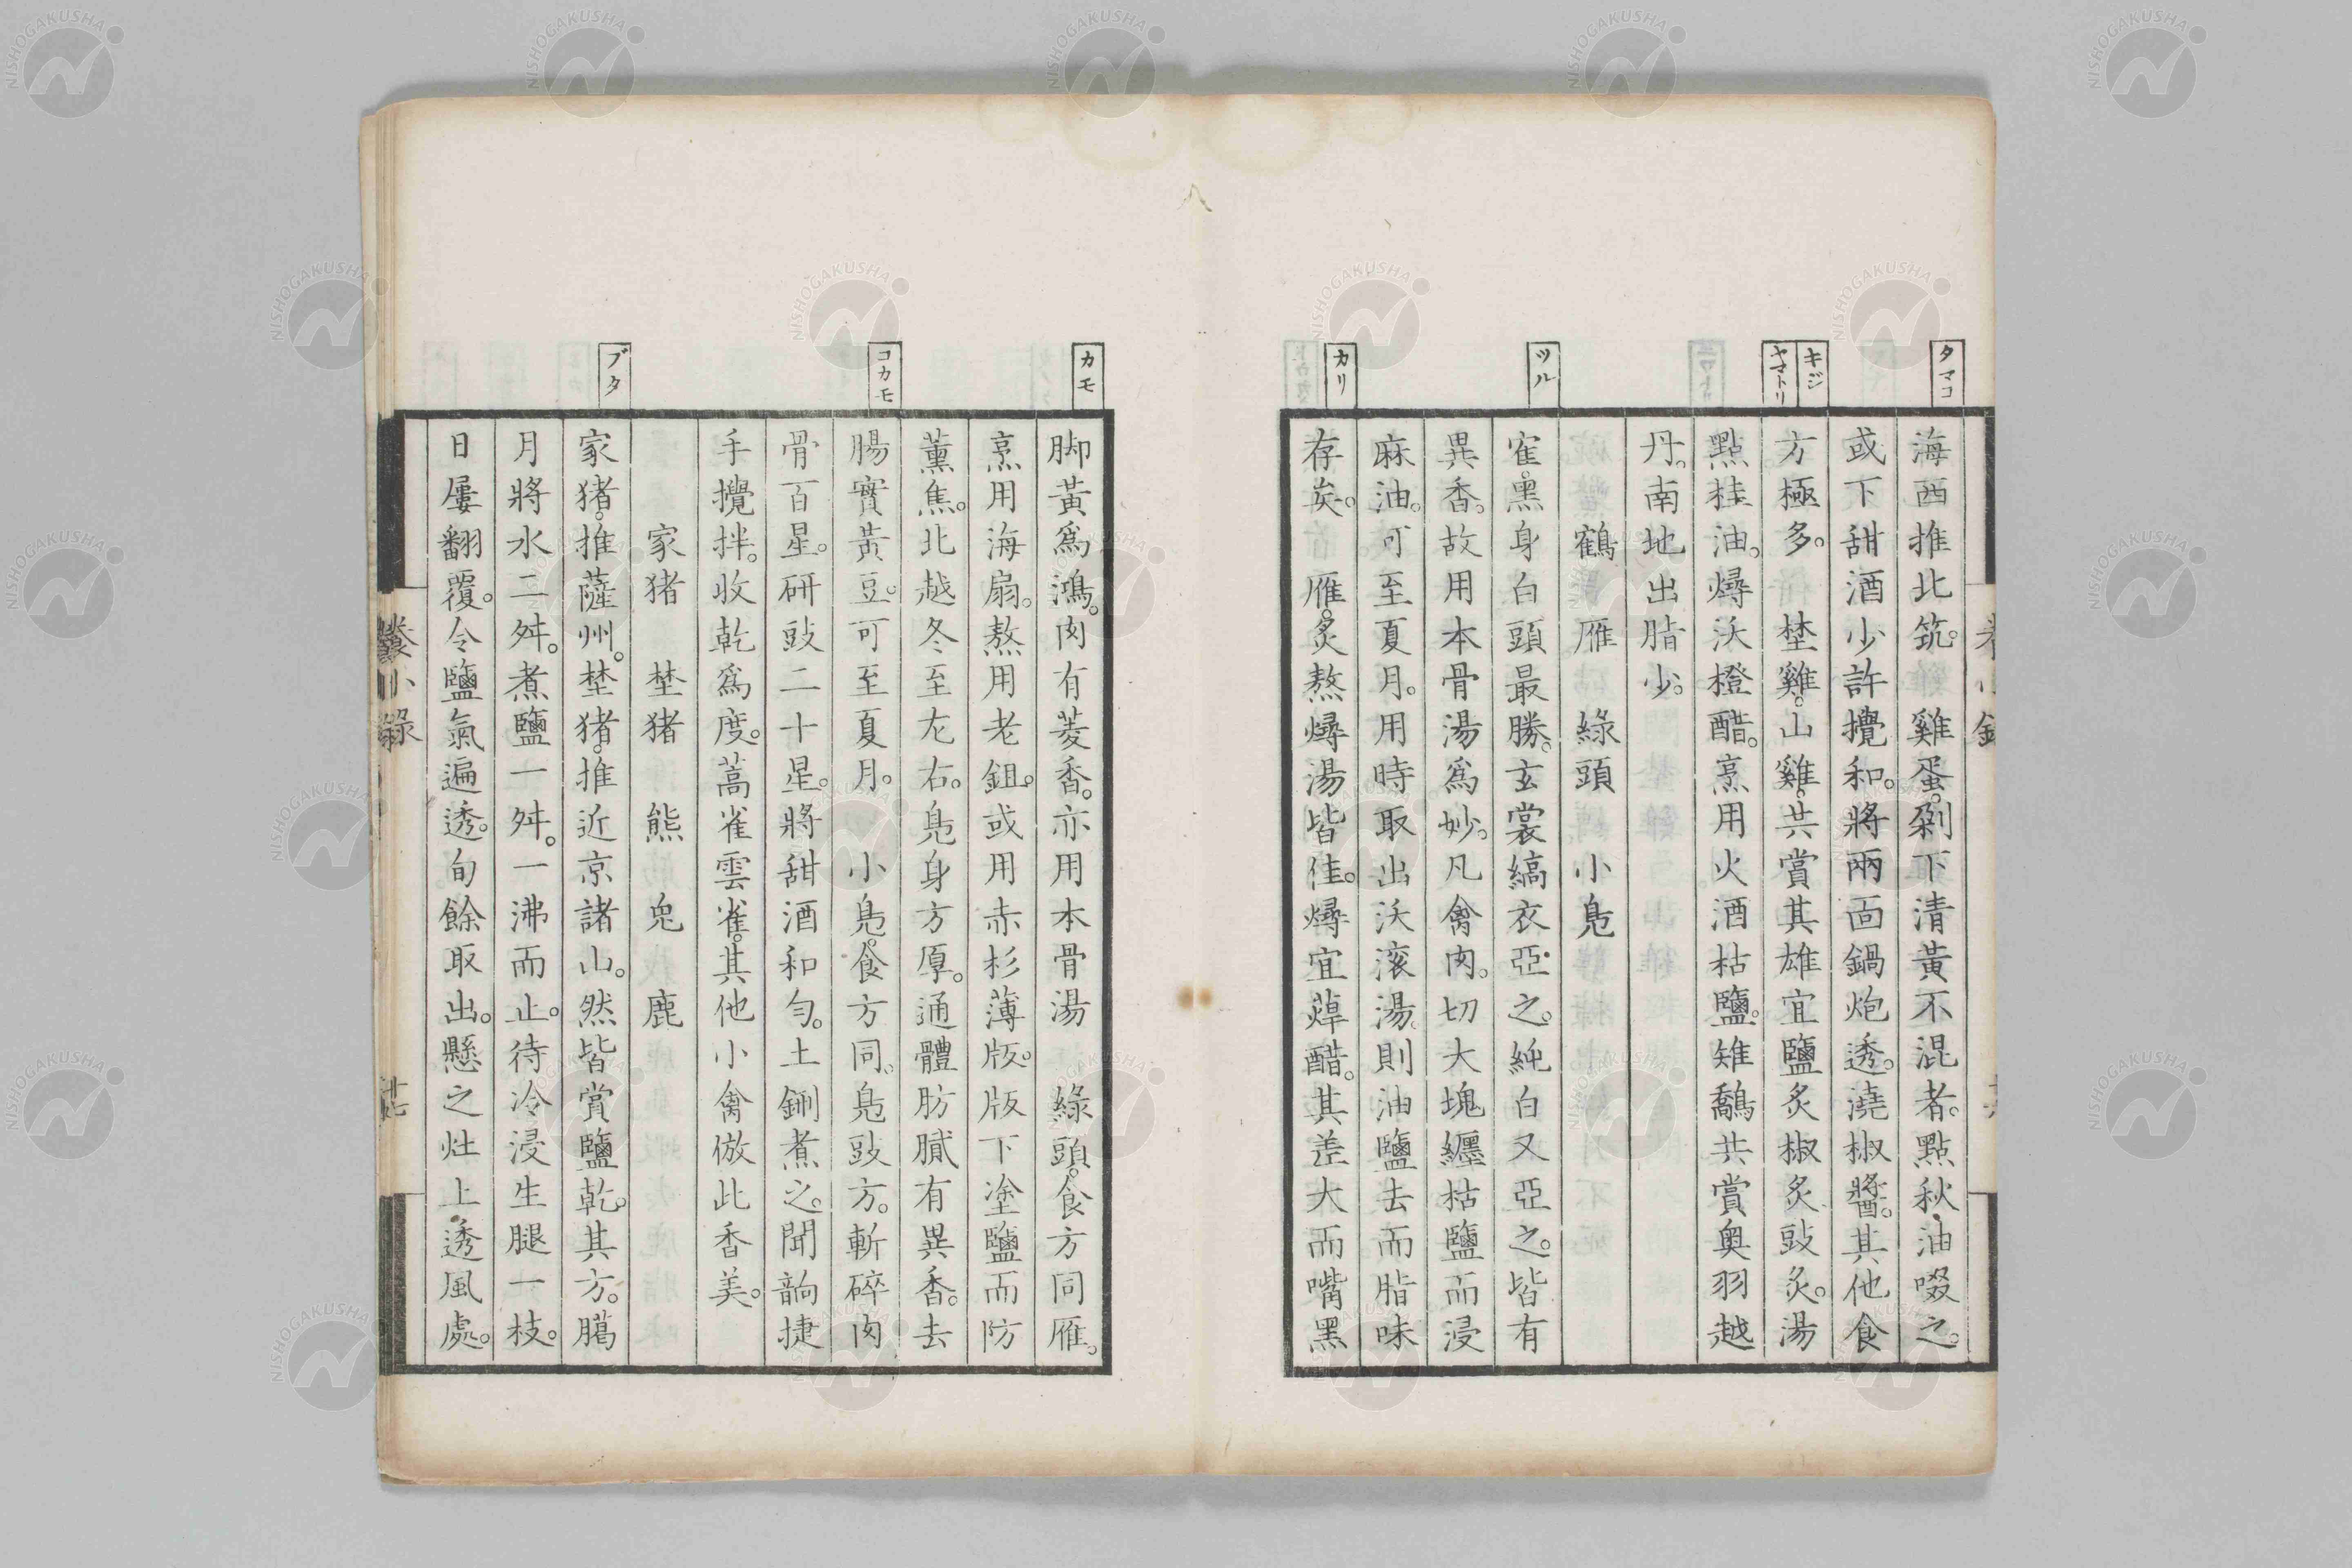 タマコ
キジ
ヤマトリ
ツル
カリ
海西推北筑。雞蛋。剁下清黃不混者。點秋油啜之。
或下甜酒少許攪和。將兩面鍋炮透。澆椒醬。其他食
方極多。埜雞。山雞。共賞其雄宜鹽炙椒炙豉炙。湯
點桂油。燖沃橙醋。烹用火酒枯鹽。雉鷸共賞奧羽越
丹。南地出脂少。
鶴 雁 綠頭 小鳧
寉。黑身白頭最勝。玄裳縞衣亞之。純白又亞之。皆有
異香。故用本骨湯爲妙。凡禽肉。切大塊纏枯鹽而浸
麻油。可至夏月。用時取出沃滚湯。則油鹽去而脂味
存矣。雁。炙熬燖湯皆佳。燖宜蔊醋。其差大而嘴黑
カモ
コカモ
ブタ
脚黃爲鴻。肉有菱香。亦用本骨湯 綠頭。食方同雁。
烹用海扇。熬用老鉏。或用赤杉薄版。版下塗鹽而防
薰焦。北越冬至左右。鳧身方厚。通體肪膩有異香。去
腸實黃豆。可至夏月。 小鳧。食方同。鳧豉方。斬碎肉
骨百星。研豉二十星。將甜酒和勻。土鉶煮之。聞韵捷
手攪拌。收乾爲度。蒿雀雲雀。其他小禽倣此香美。
家猪 埜猪 熊 兔 鹿
家猪。推薩州。埜猪。推近京諸山。然皆賞鹽乾。其方。臈
月將水二舛。煮鹽一舛。一沸而止。待冷浸生腿一枝。
日屢翻覆。令鹽氣遍透。旬餘取出。懸之灶上透風處。